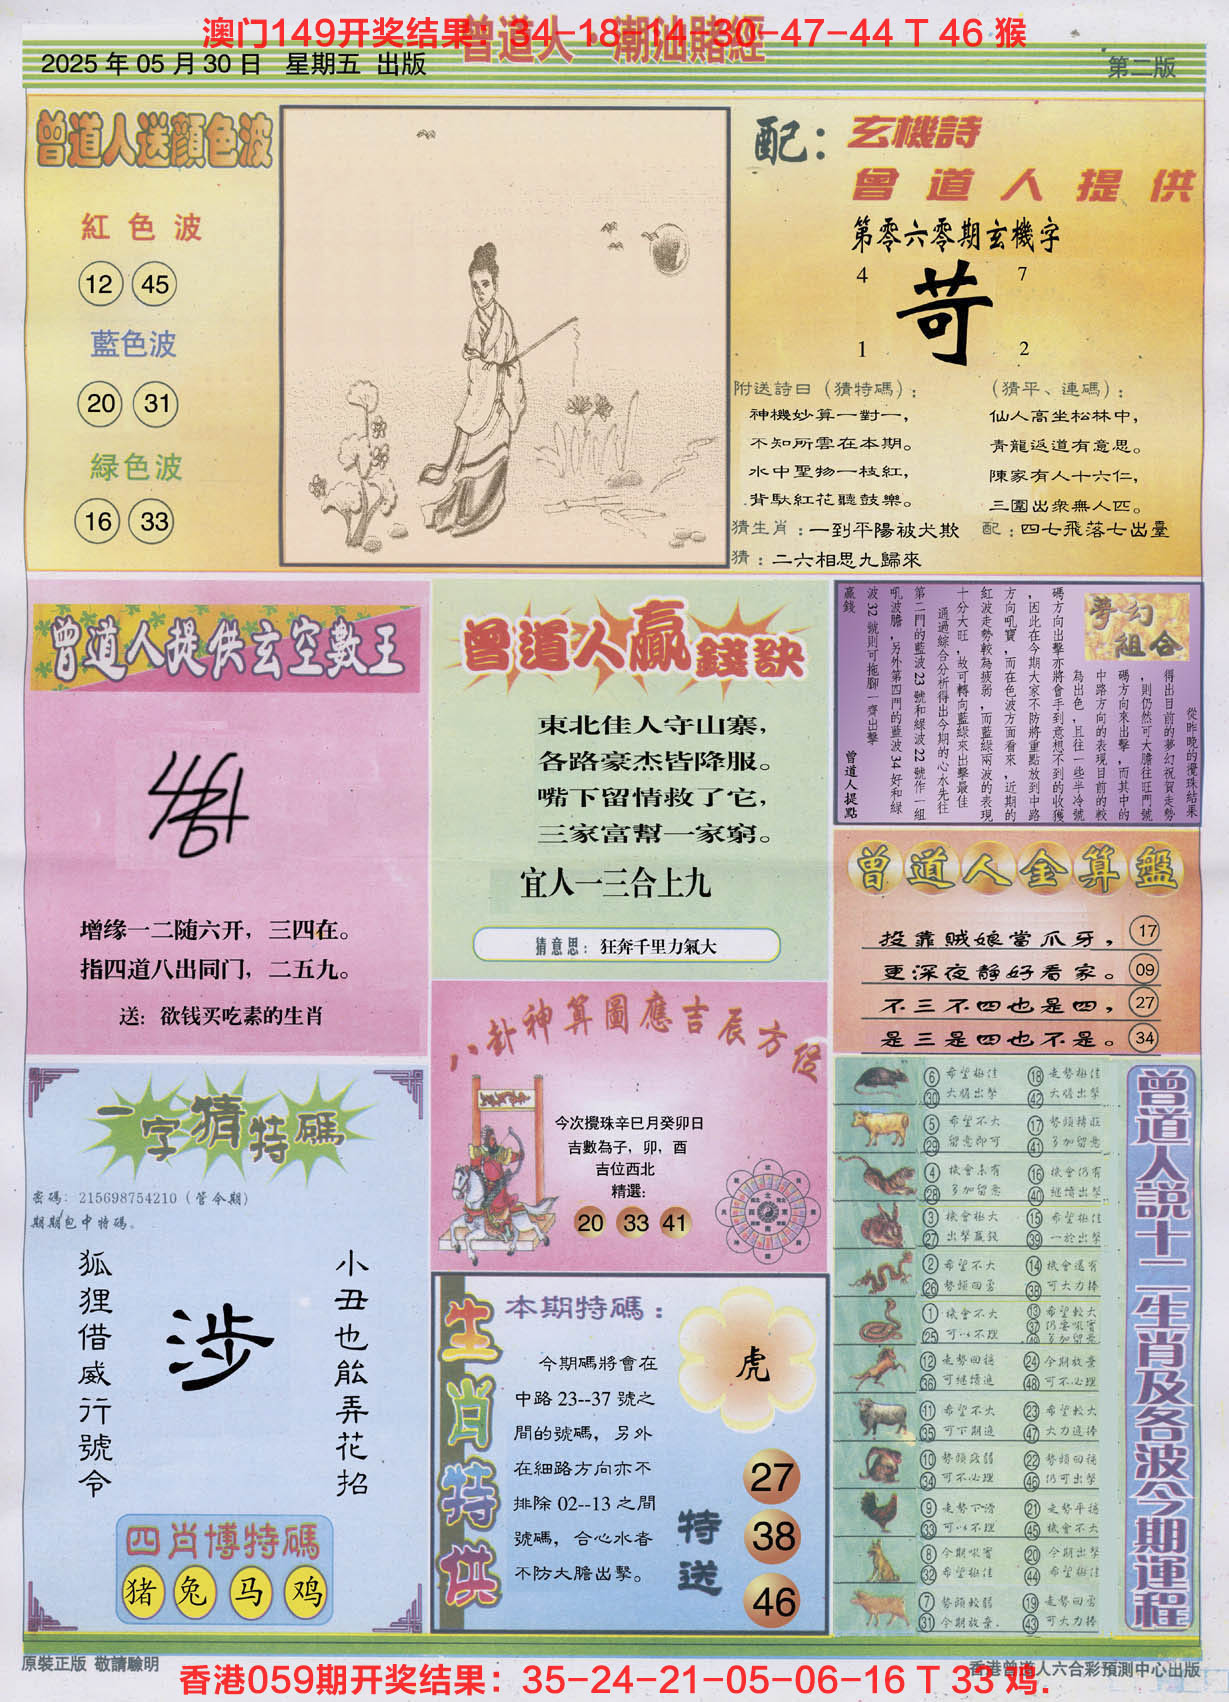 澳门149开奖结果：34-18-14-30-47-44 T 46 猴
曾道人·潮汕賭經
2025 年 05 月 30 日 星期五 出版
第二版
曾道人送顔色波
紅色波
12 45
藍色波
20 31
緑色波
16 33
配：
玄機詩
曾道人提供
第零六零期玄機字
4 7
苛
1 2
附送詩曰（猜特碼）：
神機妙算一對一，
不知所雲在本期。
水中聖物一枝紅，
背馱紅花聽鼓樂。
（猜平、連碼）：
仙人高坐松林中，
青龍返道有意思。
陳家有人十六仁，
三圍出衆無人匹。
猜生肖：一到平陽被犬欺
配：四七飛落七出臺
猜：二六相思九歸來
曾道人提供玄空數王
增缘一二随六开，三四在。
指四道八出同门，二五九。
送：欲钱买吃素的生肖
曾道人贏錢訣
東北佳人守山寨，
各路豪杰皆降服。
嘴下留情救了它，
三家富幫一家窮。
宜人一三合上九
猜意思：狂奔千里力氣大
夢幻組合
從昨晚的攪珠結果
得出目前的夢幻祝賀走勢
，則仍然可大膽往旺門號
碼方向來出擊，而其中的
中路方向的表現目前的較
為出色，且往一些半冷號
碼方向出擊亦將會手到意想不到的收獲
，因此在今期大家不防將重點放到中路
方向吼寶，而在色波方面看來，近期的
紅波走勢較為疲弱，而藍綠兩波的表現
十分大旺，故可轉向藍綠來出擊最佳
通過綜合分析得出今期的心水先往
第二門的藍波23號和綠波22號作一組
吼波膽，另外第四門的藍波34好和綠
波32號則可拖腳一齊出擊
贏錢
曾道人提點
曾道人金算盤
投靠賊娘當爪牙， 17
更深夜靜好看家。 09
不三不四也是四， 27
是三是四也不是。 34
八卦神算圖應吉辰方位
今次攪珠辛巳月癸卯日
吉數為子，卯，酉
吉位西北
精選：
20 33 41
一字猜特碼
密碼：215698754210（管令期）
期期包中特碼。
狐狸借威行號令
涉
小丑也能弄花招
四肖博特碼
猪 兔 马 鸡
生肖特供
本期特碼：
今期碼將會在
中路 23--37 號之
間的號碼，另外
在細路方向亦不
排除 02--13 之間
號碼，合心水者
不防大膽出擊。
虎
特送
27
38
46
曾道人説十二生肖及各波今期運程
6 希望極佳 18 走勢極佳
30 大膽出擊 42 大膽出擊
5 希望不大 17 勢頭轉旺
29 留意即可 41 多加留意
4 機會未有 16 機會仍有
28 多加留意 40 繼續出擊
3 機會極大 15 希望極佳
27 出擊贏錢 39 一於出擊
2 希望不大 14 機會還有
26 勢頭回勇 38 可大力捧
1 機會不大 13 希望較大
25 可以不理 37
12 走勢回穩 24 今期放棄
36 可繼續追 48 可不必理
11 希望不大 23 希望較大
35 可下期追 47 大力追捧
10 勢頭疲弱 22 勢頭回穩
34 可不必理 46 仍可出擊
9 走勢下滑 21 走勢平穩
33 可以不理 45 機會不大
8 今期吼實 20 今期出擊
32 希望極佳 44 希望極佳
7 勢頭較弱 19 走勢回勇
31 今期放棄. 43 可大力捧
原裝正版 敬請驗明
香港曾道人六合彩預測中心出版
香港059期开奖结果：35-24-21-05-06-16 T 33 鸡.